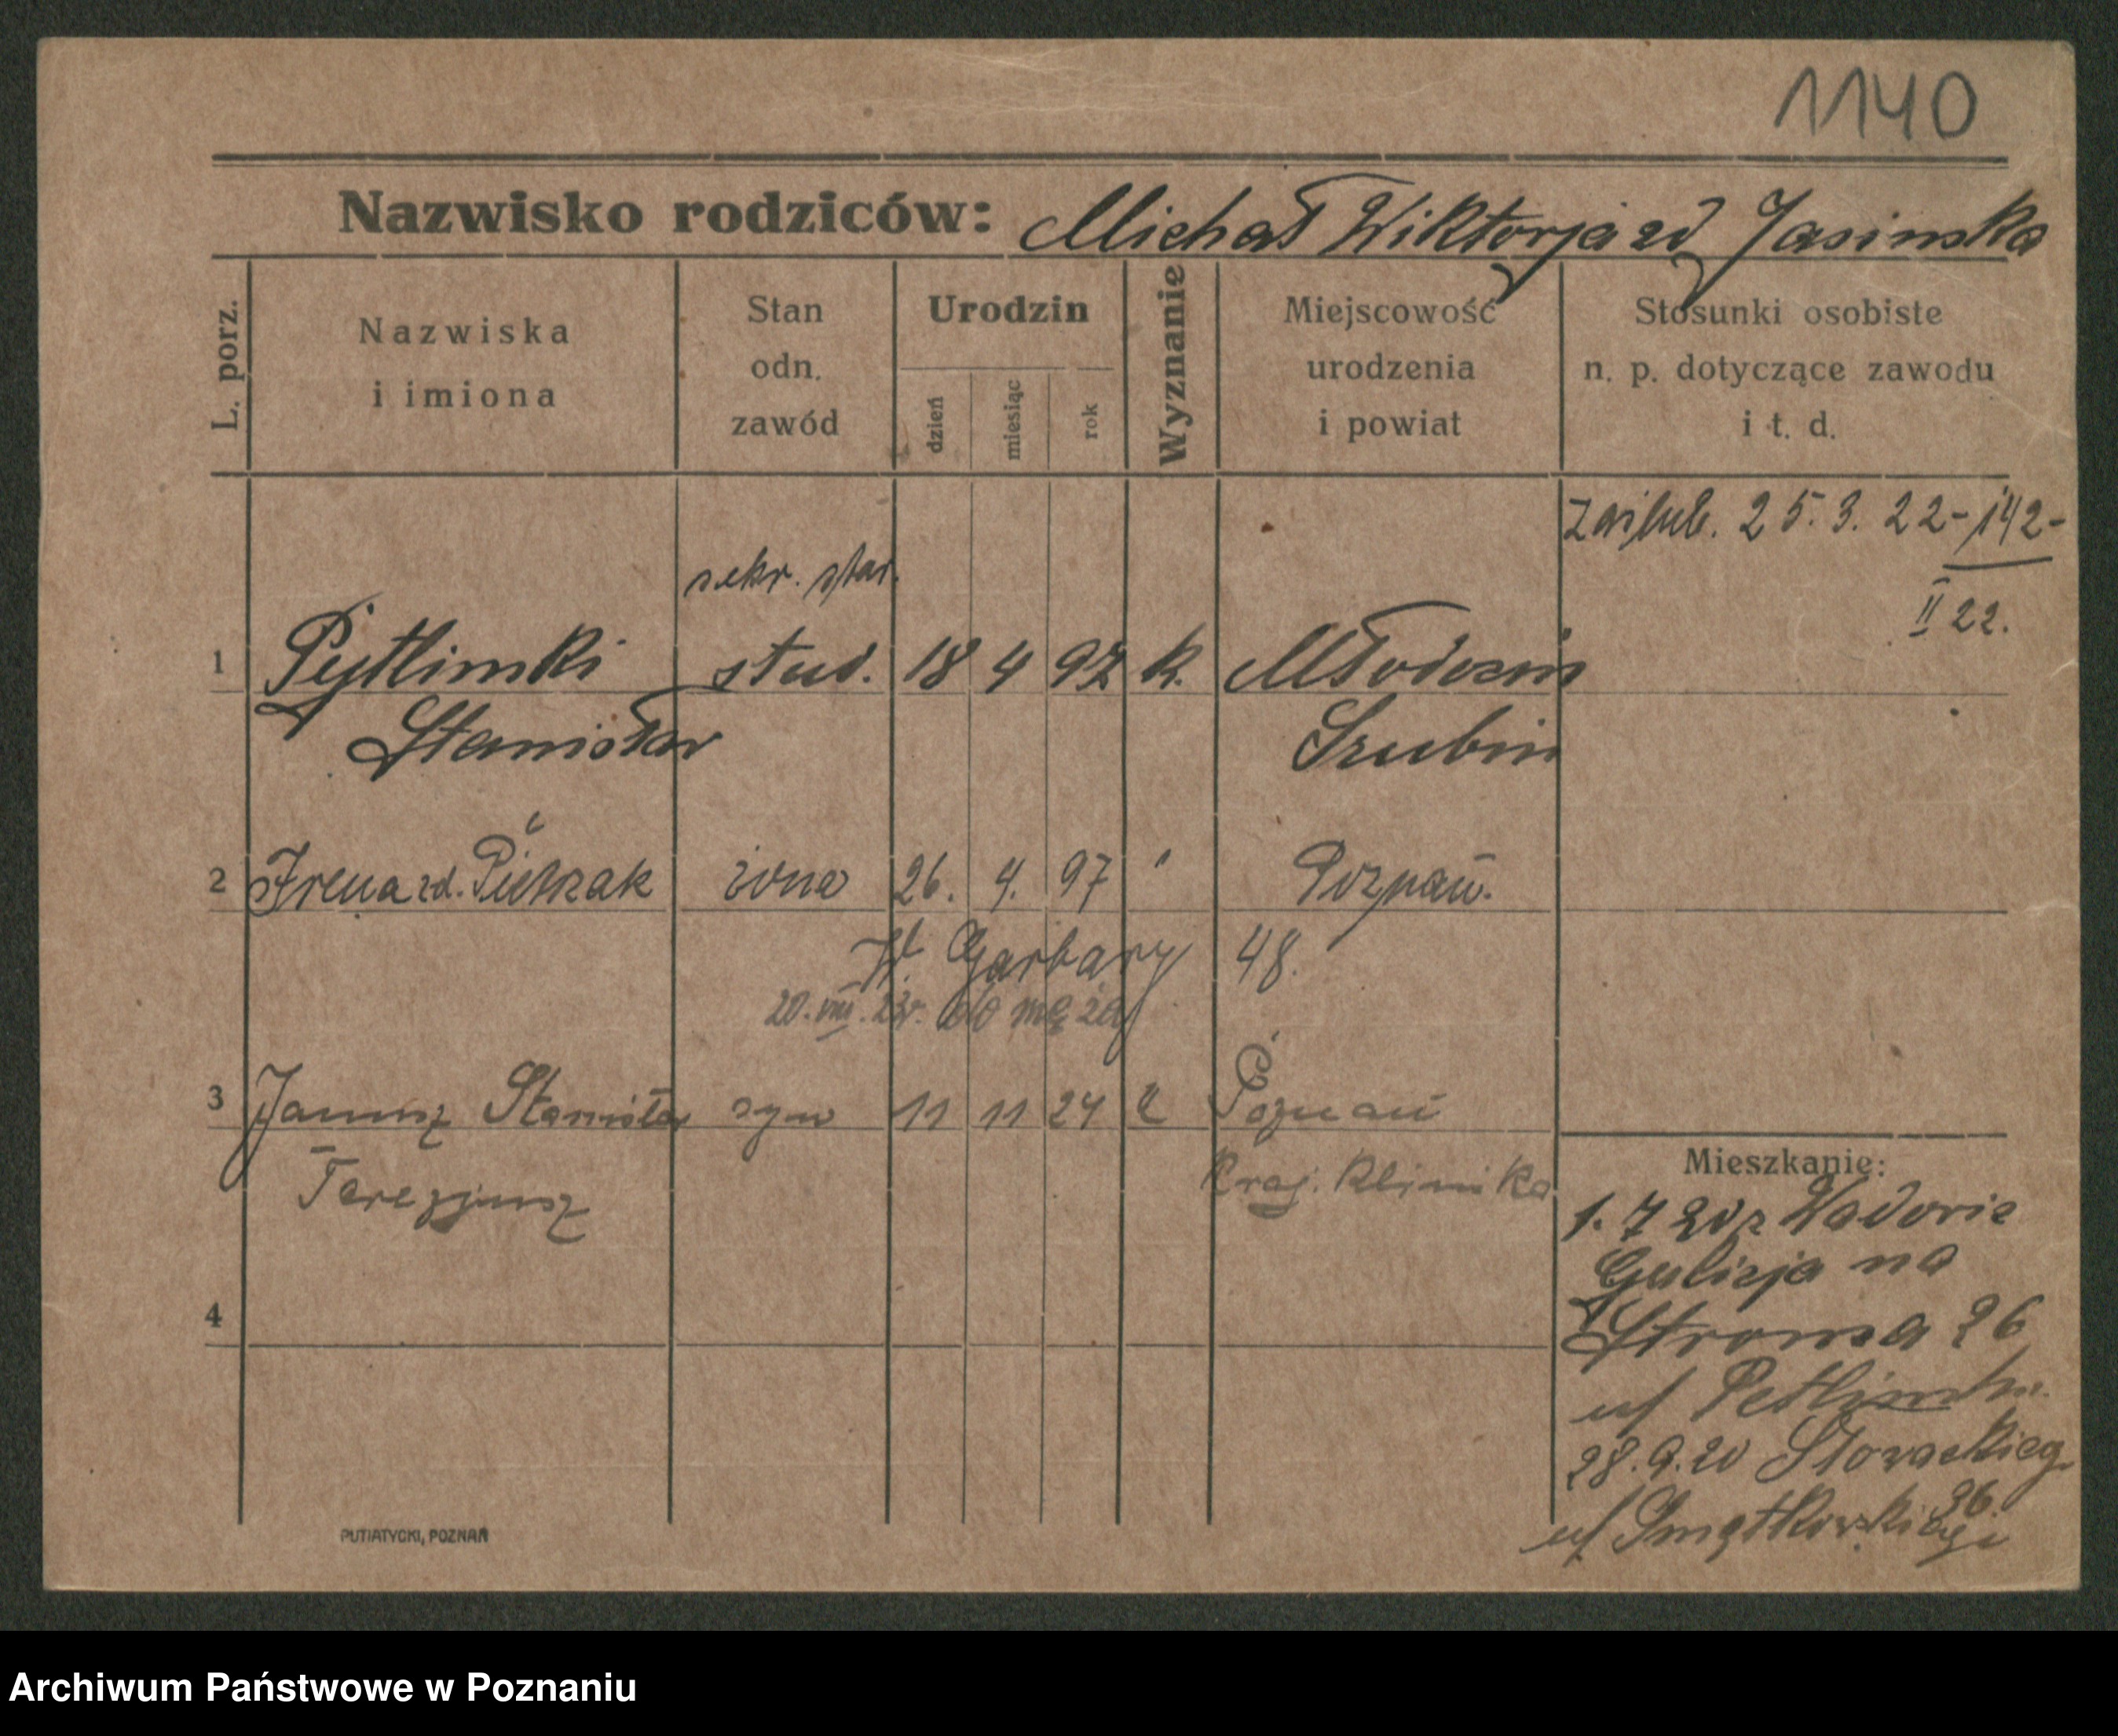 1140
Nazwisko rodziców: Michał Wiktorja zd Jasinska
L. porz.
Nazwiska
i imiona
Stan
odn.
zawód
Urodzin
dzień
miesiąc
rok
Wyznanie
Miejscowość
urodzenia
i powiat
Stosunki osobiste
n. p. dotyczące zawodu
i t. d.
zaślub. 25.3.22-142-
II 22.
sekr. star.
1 Pytlinski stud. 18 4 97 k. Młodocin
Stanisław Szubin
2 Irena zd. Pietrzak żona 26. 4. 97 " Poznań.
W. Garbary 48.
20.VIII.23r. do męża
3 Janusz Stanisław syn 11 11 24 " Poznań
Terezjusz Kraj. Klinika
4
Mieszkanie:
1.7 20 z Wadowic
Galicja na
Stroma 26
u/
28.9.20 Słowackiego
36
u/ Smątkowskiego
PUTIATYCKI, POZNAŃ
Archiwum Państwowe w Poznaniu